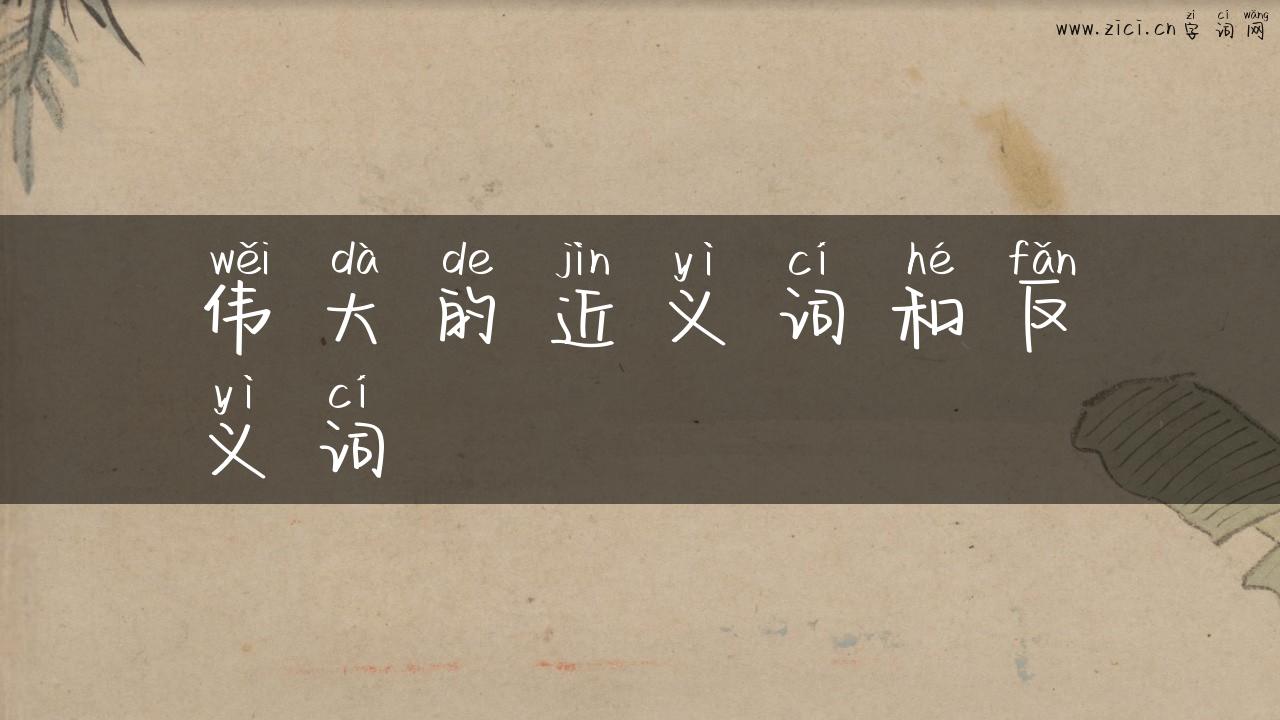 zì cí wǎng
www.zici.cn 字词网
wěi dà de jìn yì cí hé fǎn
伟大的近义词和反
yì cí
义词